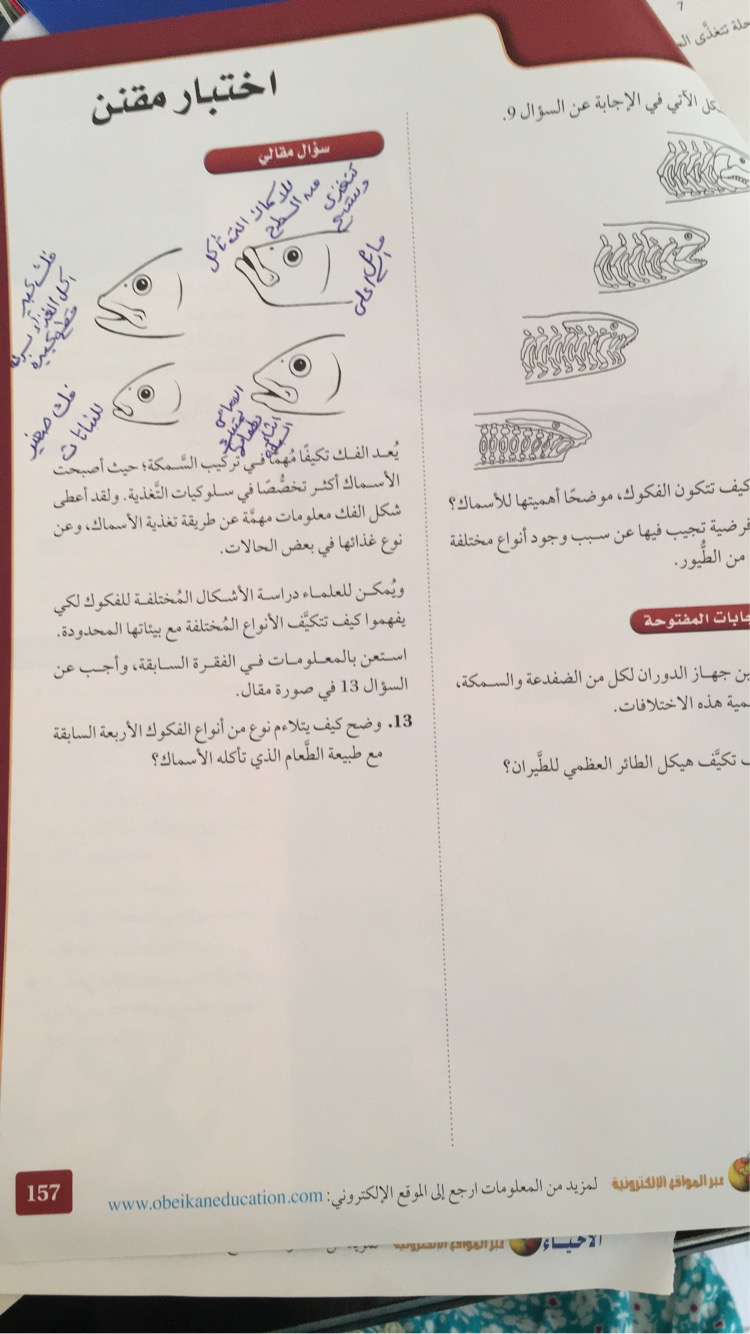 حلة تتغذَّى
7
اختبار مقنن
كل الآتي في الإجابة عن السؤال 9.
كيف تتكون الفكوك، موضحًا أهميتها للأسماك؟
فرضية تجيب فيها عن سبب وجود أنواع مختلفة
من الطُّيور.
جابات المفتوحة
ين جهاز الدوران لكل من الضفدعة والسمكة،
مية هذه الاختلافات.
تكيَّف هيكل الطائر العظمي للطَّيران؟
سؤال مقالي
تتغذى
من السطح
للأسماك التي تأكل
فك كبير
أكل الغذاء
قطع كبيرة
فك صغير
للنباتات
يُعد الفك تكيفًا مُهمًّا في تركيب السَّمكة؛ حيث أصبحت
الأسماك أكثر تخصُّصًا في سلوكيات التَّغذية. ولقد أعطى
شكل الفك معلومات مهمَّة عن طريقة تغذية الأسماك، وعن
نوع غذائها في بعض الحالات.
ويُمكن للعلماء دراسة الأشكال المُختلفة للفكوك لكي
يفهموا كيف تتكيَّف الأنواع المُختلفة مع بيئاتها المحدودة.
استعن بالمعلومات في الفقرة السابقة، وأجب عن
السؤال 13 في صورة مقال.
13. وضح كيف يتلاءم نوع من أنواع الفكوك الأربعة السابقة
مع طبيعة الطَّعام الذي تأكله الأسماك؟
عبر المواقع الإلكترونية لمزيد من المعلومات ارجع إلى الموقع الإلكتروني: www.obeikaneducation.com
157
الأحياء عبر المواقع الإلكترونية